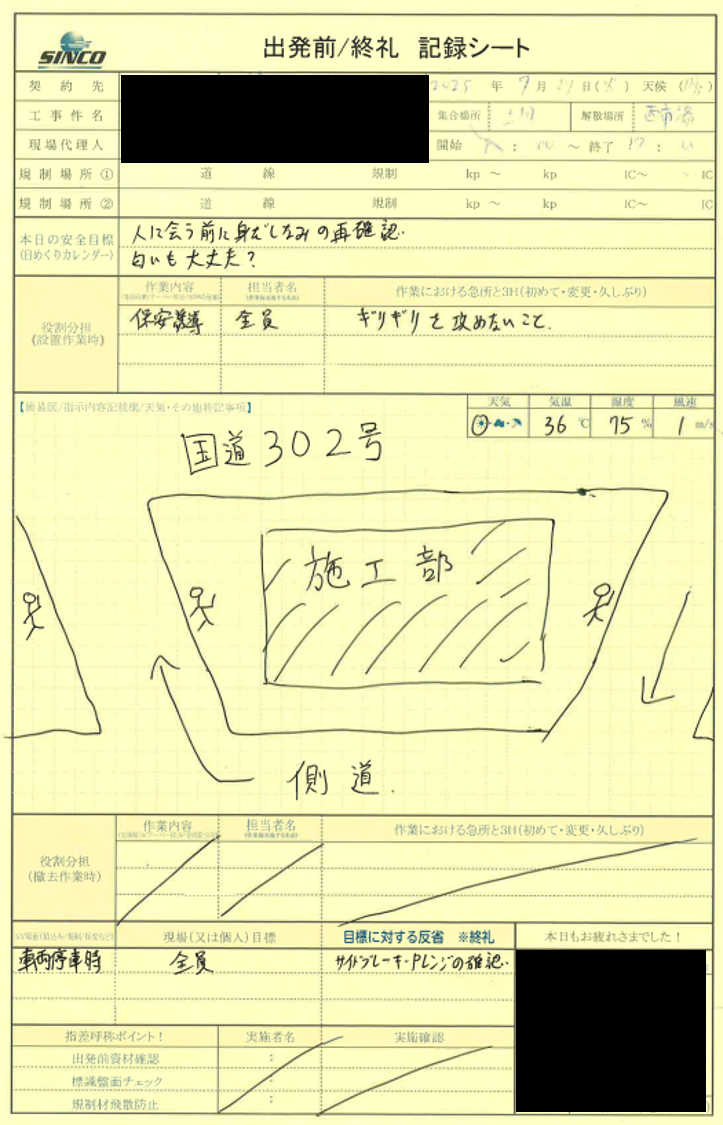 SINCO
出発前/終礼 記録シート
契約先 2025 年 7 月 29 日(火) 天候( )
工事件名 集合場所 解散場所
現場代理人 開始 : 00 ～ 終了 17 :
規制場所① 道 線 規制 kp ～ kp IC～ IC
規制場所② 道 線 規制 kp ～ kp IC～ IC
本日の安全目標
(日めくりカレンダー)
人に会う前に身だしなみの再確認.
匂いも大丈夫?
役割分担
(設置作業時)
作業内容 担当者名 作業における急所と3H(初めて・変更・久しぶり)
保安誘導 全員 ギリギリを攻めないこと.
【簡易図/指示内容記載欄/天気・その他特記事項】
天気 気温 湿度 風速
36 ℃ 75 % 1 m/s
国道302号
施工部
側道.
役割分担
(撤去作業時)
作業内容 担当者名 作業における急所と3H(初めて・変更・久しぶり)
現場(又は個人)目標 目標に対する反省 ※終礼 本日もお疲れさまでした!
車両停車時 全員 サイドブレーキ・Pレンジの確認.
指差呼称ポイント! 実施者名 実施確認
出発前資材確認 :
標識盤面チェック :
規制材飛散防止 :